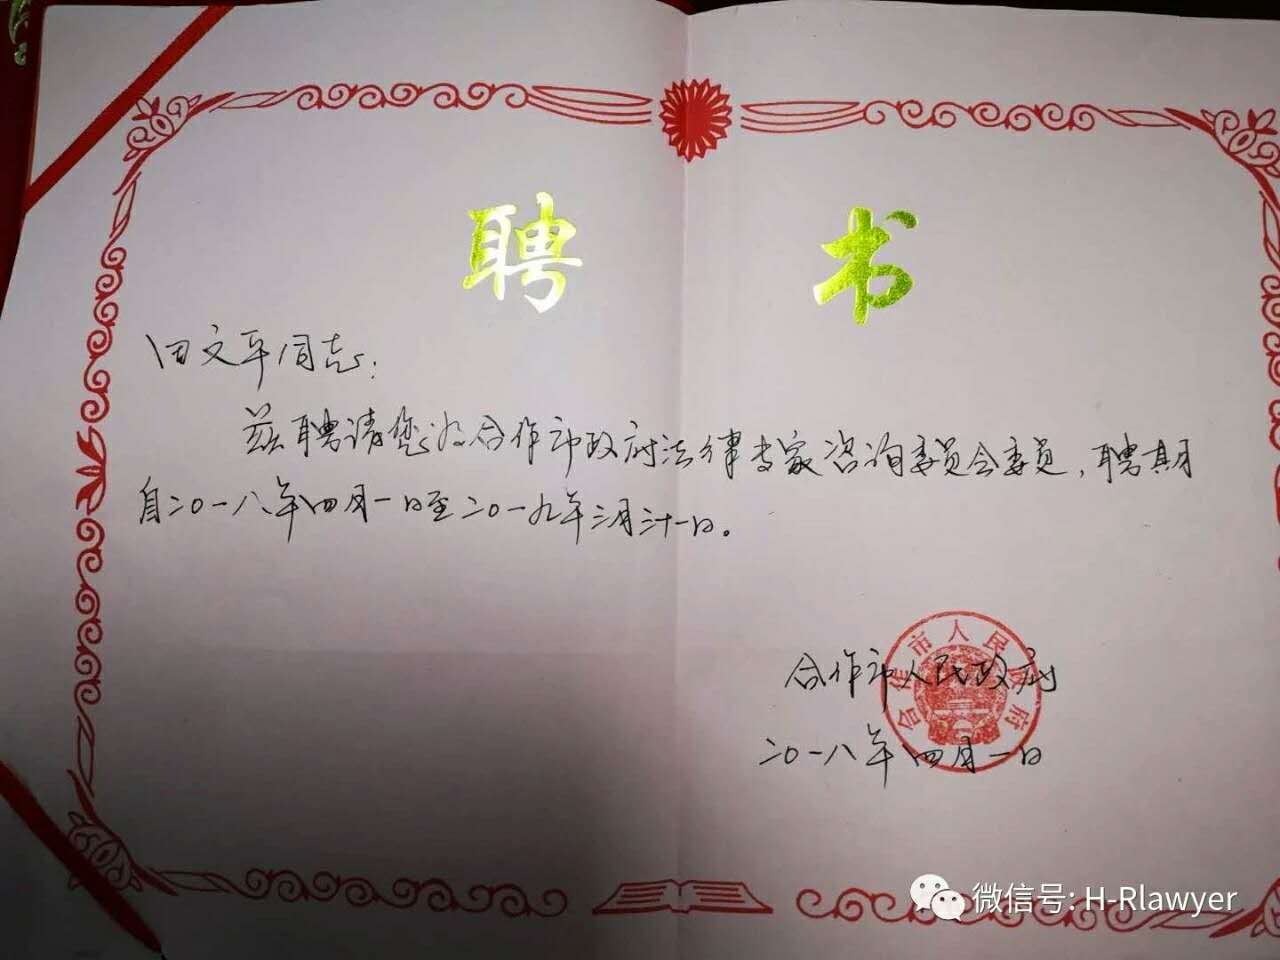 聘书
田文平同志：
兹聘请您为合作市政府法律专家咨询委员会委员，聘期
自二〇一八年四月一日至二〇一九年三月三十一日。
合作市人民政府
合作市人民政府
二〇一八年四月一日
微信号: H-Rlawyer